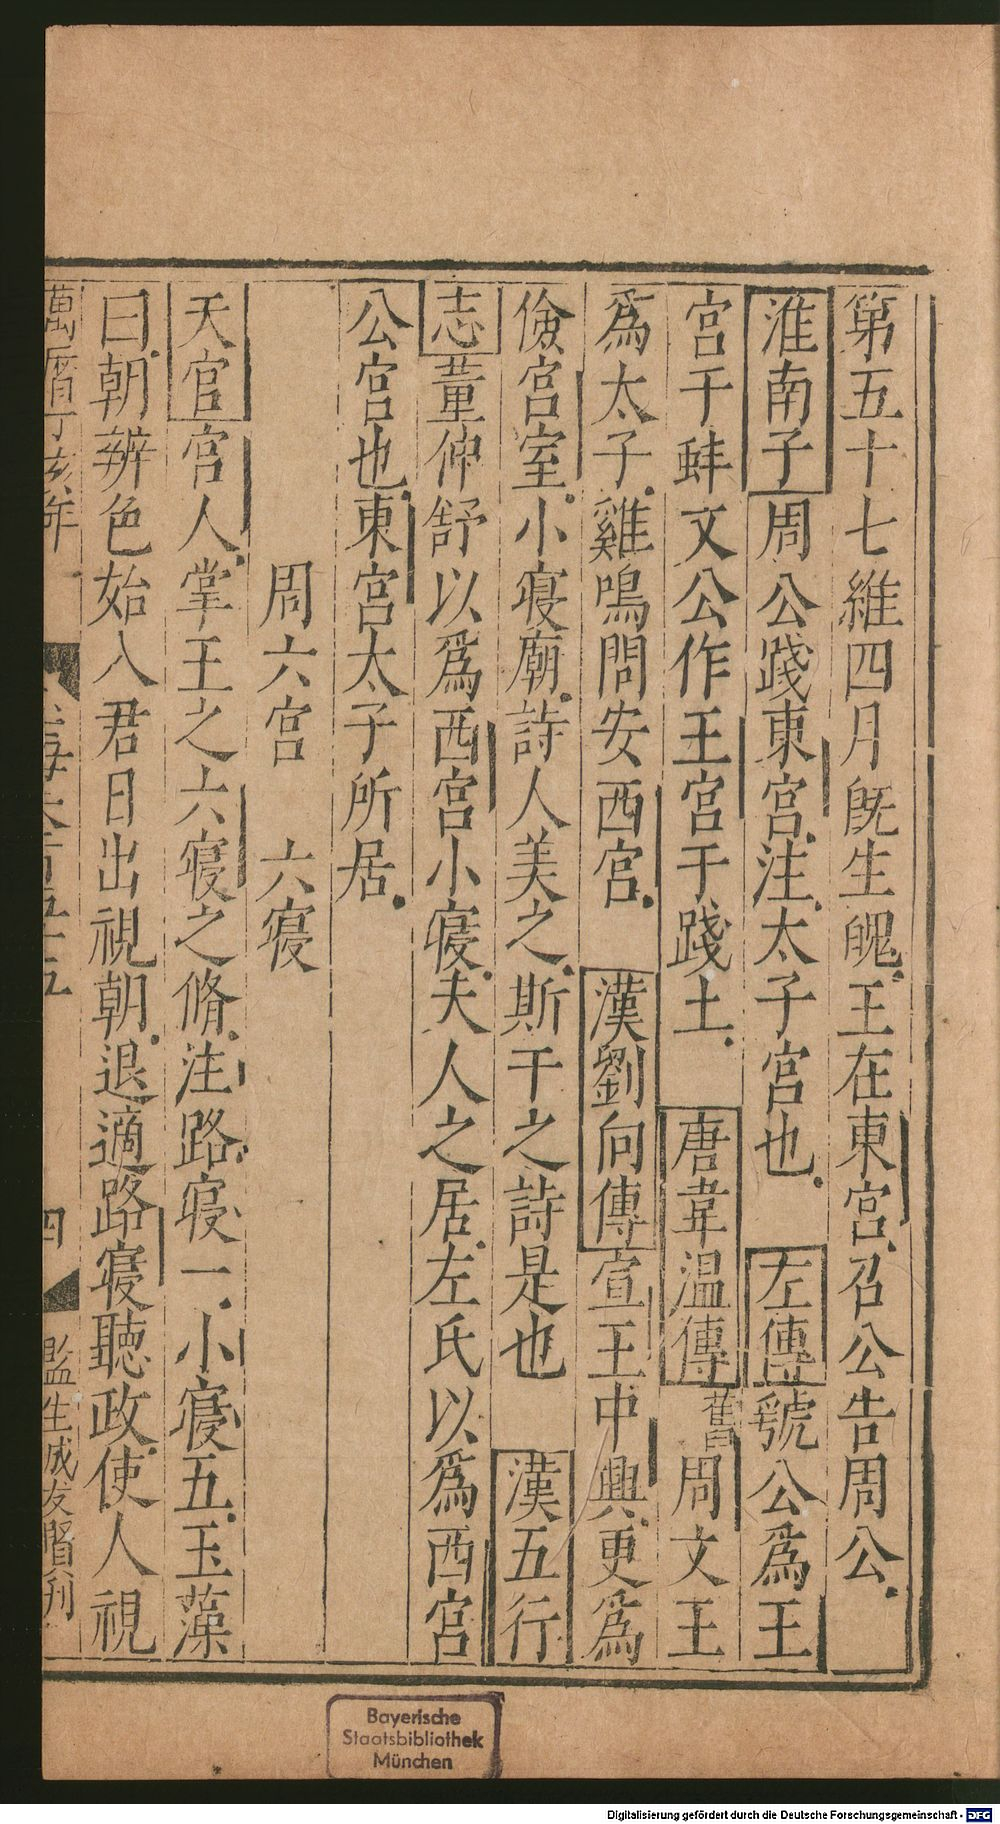 第五十七維四月旣生魄王在東宮召公告周公
淮南子周公踐東宮注太子宮也左傳虢公爲王
宮于蚌文公作王宮于踐土唐韋温傳舊周文王
爲太子雞鳴問安西宮漢劉向傳宣王中興更爲
儉宮室小寢廟詩人美之斯干之詩是也漢五行
志董仲舒以爲西宮小寢夫人之居左氏以爲西宮
公宮也東宮太子所居
周六宮 六寢
天官宮人掌王之六寢之脩注路寢一小寢五玉藻
曰朝辨色始入君日出視朝退適路寢聽政使人視
萬曆丁亥年
海卷百五十五
四
監生成友賢刊
Bayerische
Staatsbibliothek
München
Digitalisierung gefördert durch die Deutsche Forschungsgemeinschaft - DFG